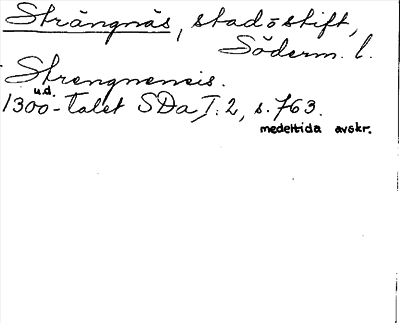 Strängnäs, stad o stift,
Söderm. l.
Strengnensis.
u.d.
1300-talet SDa I:2, s. 763.
medeltida avskr.